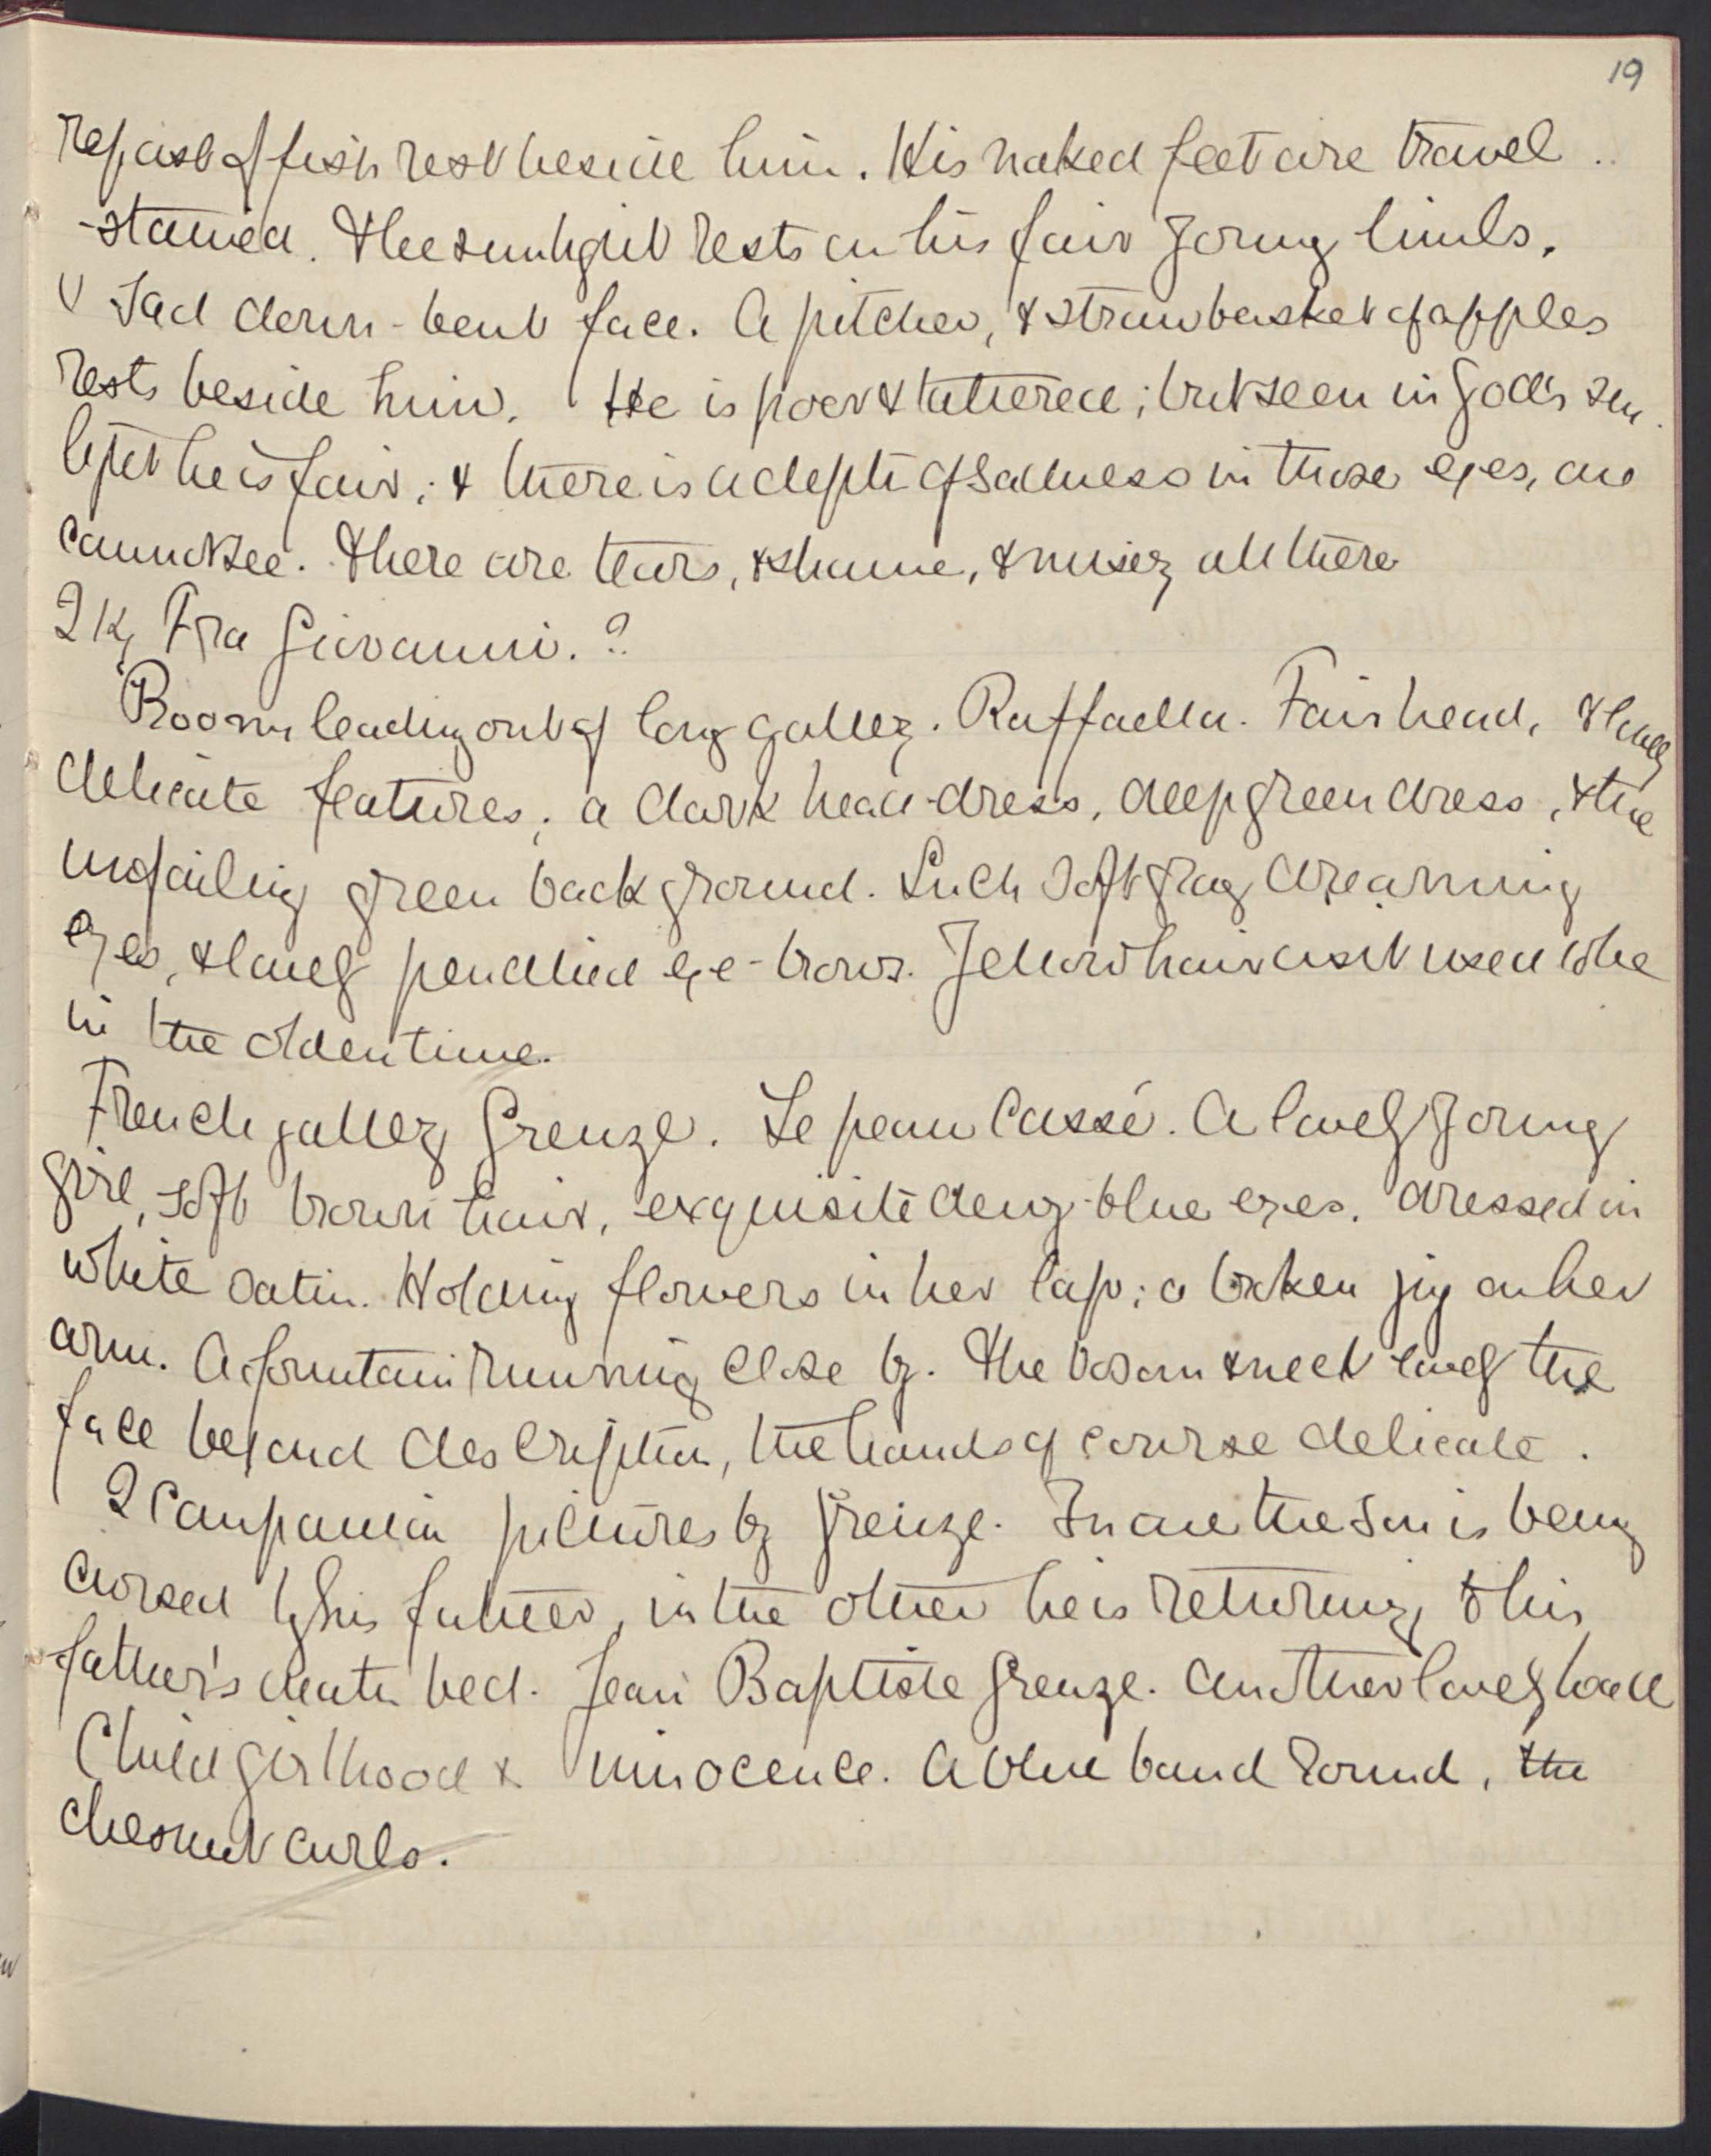 19
repast of fish rest beside him. His naked feet are travel
-stained. The sunlight rests on his fair young limbs,
& sad down-bent face. A pitcher, & straw basket of apples
rests beside him. He is poor & tattered; but seen in God's sun
light he is fair; & there is a depth of sadness in those eyes, one
cannot see. There are tears, & shame, & misery all there
2 by Fra Giovanni.?
Room leading out of long gallery. Raffaella. Fair head, & lovely
delicate features; a dark head-dress, deep green dress, & the
unfailing green back ground. Such soft gray dreaming
eyes, & lovely pencilled eye-brows. Yellow hair as it used to be
in the olden time.
French gallery Greuze. Le peau Cassé. A lovely young
girl, soft brown hair, exquisite dewy-blue eyes. dressed in
white satin. Holding flowers in her lap; a broken jug on her
arm. A fountain running close by. The bosom & neck lovely the
face beyond description, the hands of course delicate.
2 Companion pictures by Greuze. In one the son is being
cursed by his father, in the other he is returning to his
father's death bed. Jean Baptiste Greuze. Another lovely head
Child girlhood & innocence. A blue band round, the
chesnut curls.